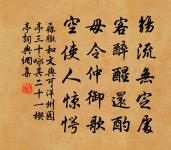 觴流無定處
客醉醒還酌
毋令仲御歌
空使人驚愕
蘇轍和文與可洋州園
亭三十詠其二十一禊
亭詞典網集